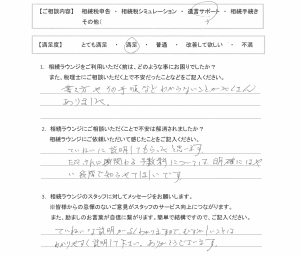 【ご相談内容】 相続税申告 ・ 相続税シミュレーション ・ 遺言サポート ・ 相続手続き
その他(　　　　　)
【満足度】 とても満足 ・ 満足 ・ 普通 ・ 改善して欲しい ・ 不満
1. 相続ラウンジをご利用いただく前は、どのような事にお困りでしたか?
また、税理士にご相談いただく上で不安だったことなどをご記入ください。
書き方やその手順などわからないことがたくさん
ありました。
2. 相続ラウンジにご相談いただくことで不安は解消されましたか?
相続ラウンジにご依頼いただいて感じたことをご記入ください。
ていねいに説明してもらったと思います。
手数料については、明確に
段階で知らせてほしいです
3. 相続ラウンジのスタッフに対してメッセージをお願いします。
※皆様からの忌憚のないご意見がスタッフのサービス向上につながります。
また、励ましのお言葉が自信に繋がります。簡単で結構ですので、ご記入ください。
ていねいな説明がよくわかりますので、むずかしいことは
わかりやすく説明して下さい。ありがとうございます。